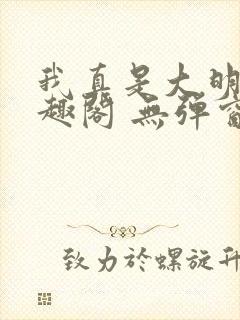 我真是大明
趣閣 無彈窗
致力於螺旋升